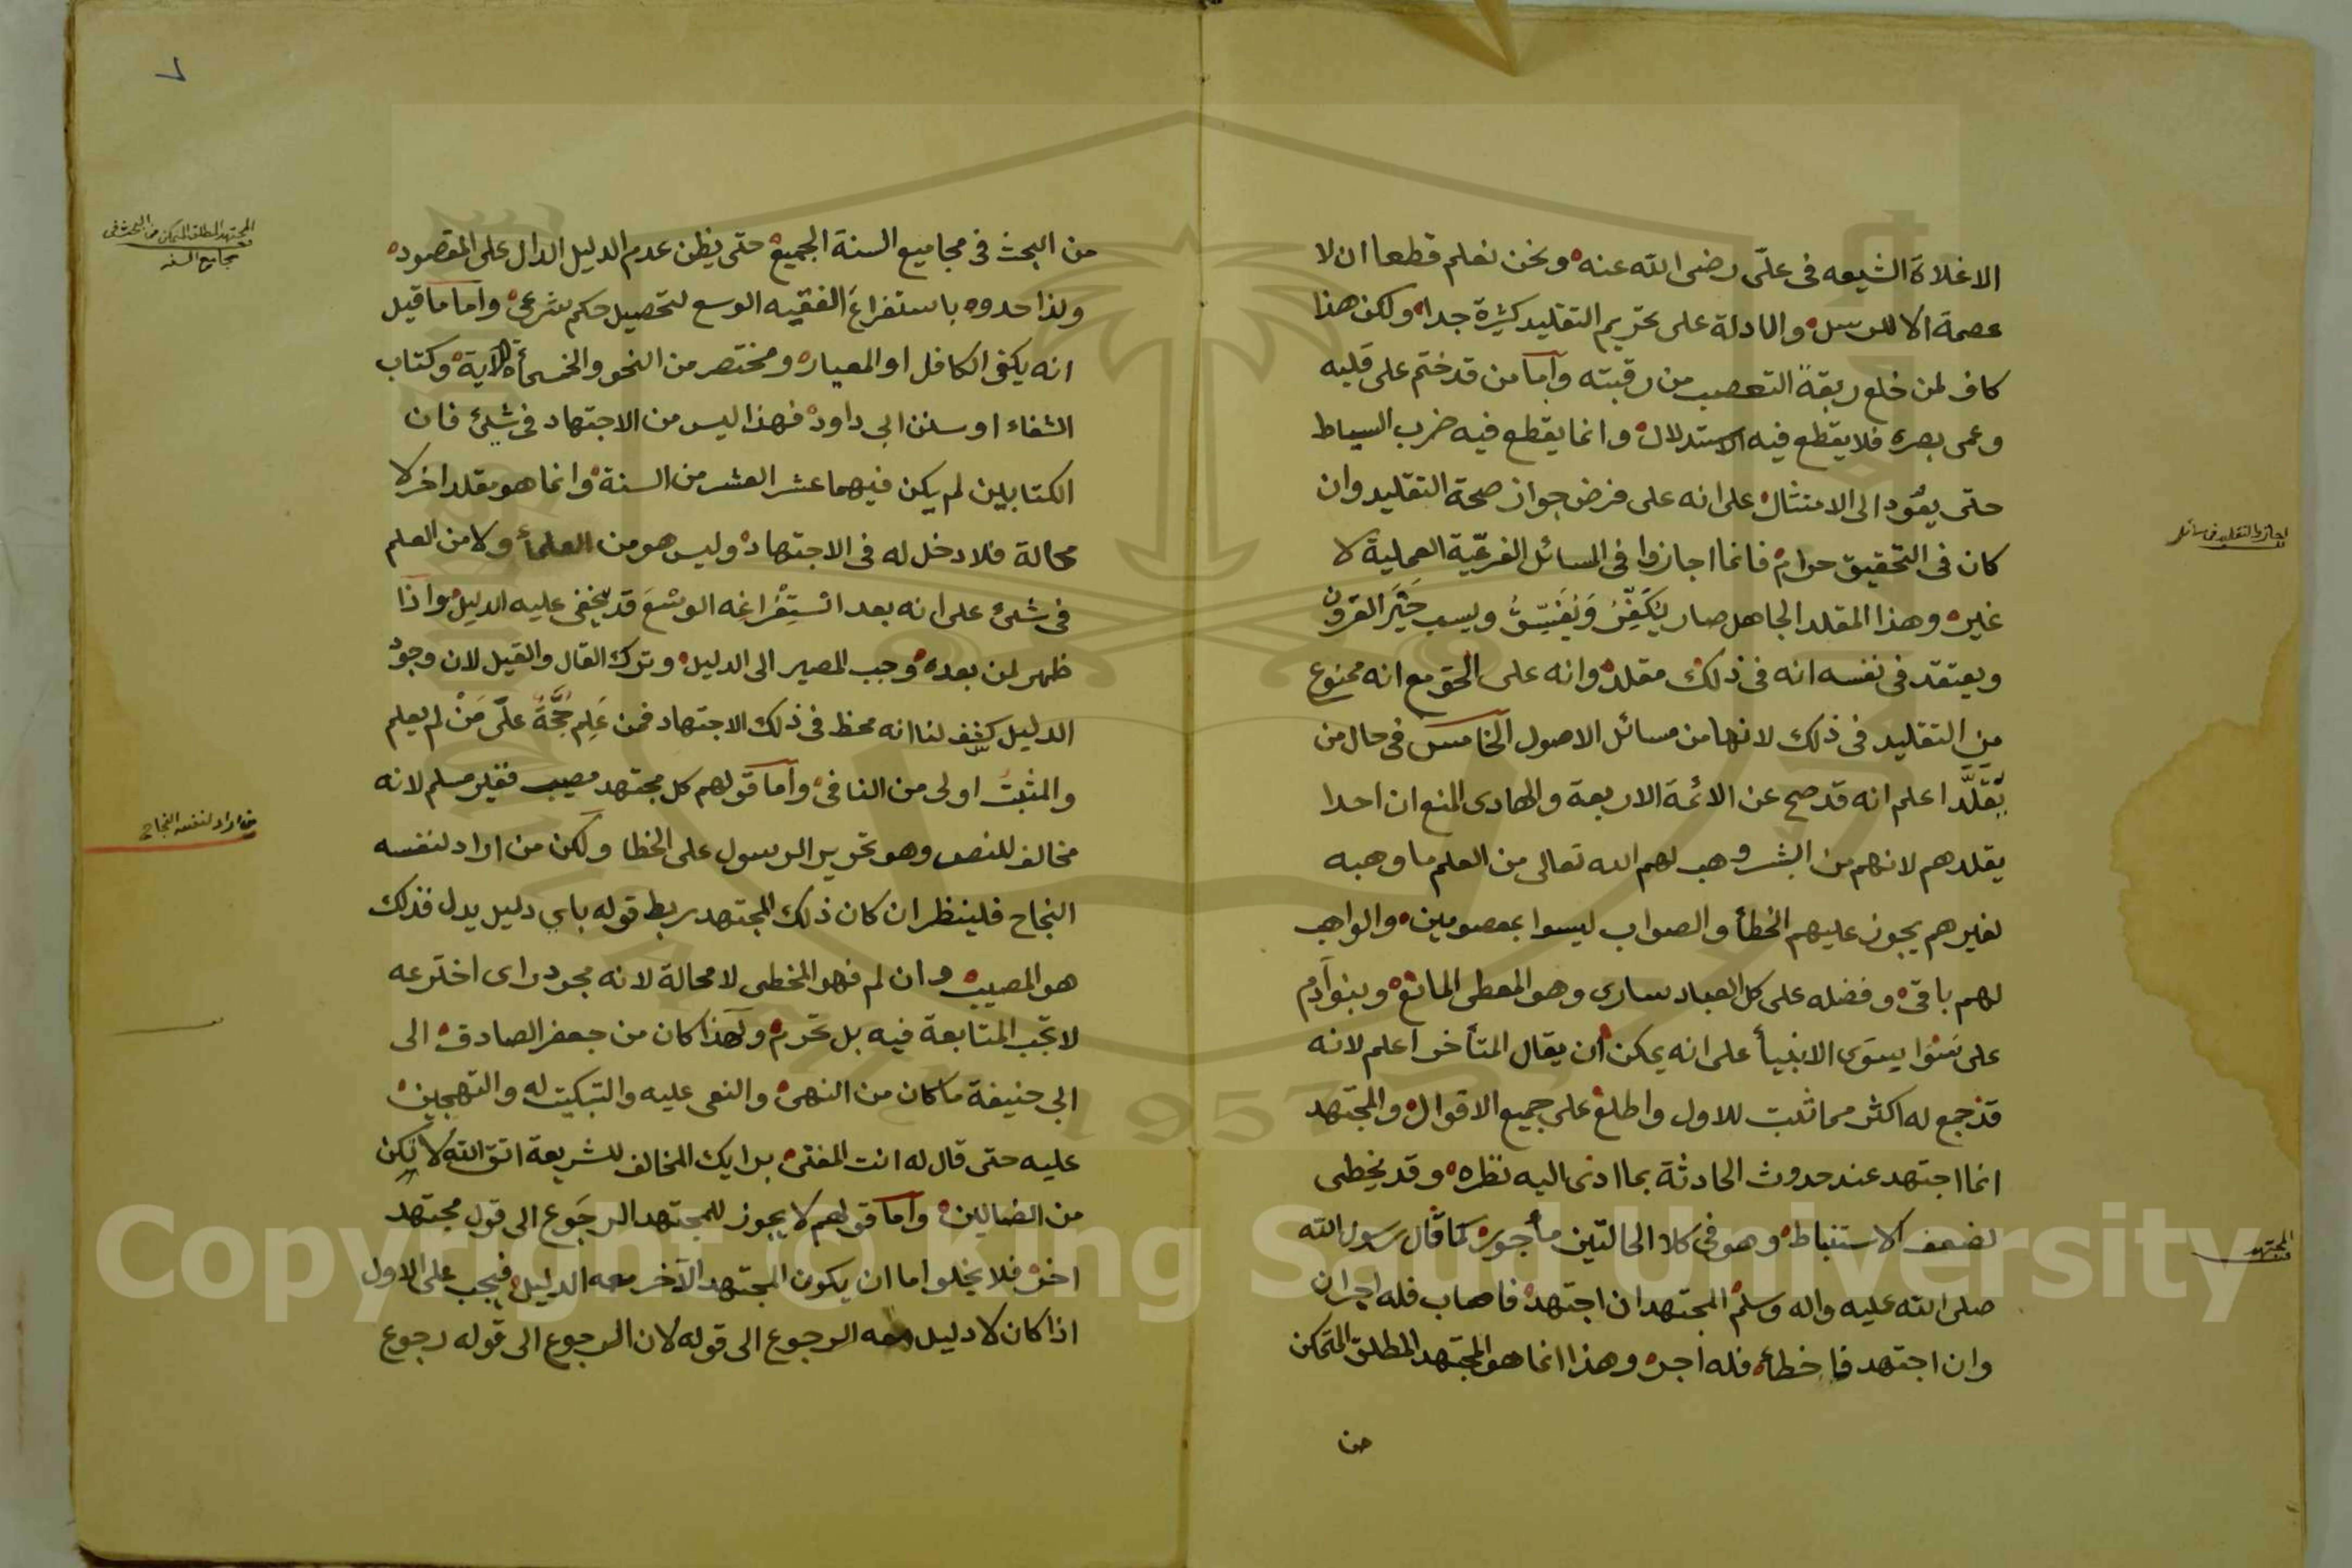 الاغلاة الشيعه فى علىّ رضى الله عنه ونحن نعلم قطعا ان لا
عصمة الا للرسل والادلة على تحريم التقليد كثيرة جدا ولكن هذا
كاف لمن خلع ربقة التعصب من رقبته وأما من قد ختم على قلبه
وعمى بصره فلا يقطع فيه الاستدلال وانما يقطع فيه ضرب السياط
حتى يعود الى الامتثال على انه على فرض جواز صحة التقليد وان
كان فى التحقيق حرام فانما اجازوا فى المسائل الفرعيّة العملية لا
غير وهذا المقلد الجاهل صار يُكَفِّرُ وَيُفَسِّقُ ويسب خَيَر القرون
ويعتقد فى نفسه انه فى ذلك مقلد وانه على الحق مع انه ممنوع
من التقليد فى ذلك لانها من مسائل الاصول الخامس فى حال من
يُقَلَّد اعلم انه قد صح عن الائمة الاربعة والهادى المنع ان احدا
يقلدهم لانهم من البشر وهب لهم الله تعالى من العلم ما وهبه
لغيرهم يجوز عليهم الخطأ والصواب ليسوا بمعصومين والواهب
لهم باقى وفضله على كل العباد سارى وهو المعطى المانع وبنوآدم
على سَوا سوَى الانبيأ على انه يمكن أن يقال المتأخر اعلم لانه
قد جمع له اكثر مما ثبت للاول واطلع على جميع الاقوال والمجتهد
انما اجتهد عند حدوث الحادثة بما ادى اليه نظره وقد يخطى
لضعف الاستنباط وهو فى كلا الحالتين مأجور كما قال رسول الله
صلى الله عليه واله وسلم المجتهد ان اجتهد فاصاب فله اجران
وان اجتهد فاخطأ فله اجر وهذا انما هو المجتهد المطلق المتمكن
من
اجازوا التقليد فى مسائل
المجتهد
من البحث فى مجاميع السنة الجميع حتى يظن عدم الدليل الدال على المقصود
ولذا حدوه باستفراغ الفقيه الوسع لتحصيل حكم شرعى وأما ما قيل
انه يكفى الكافل او المعيار ومختصر من النحو والخمسمأة الآية وكتاب
الشفاء او سنن ابى داود فهذا ليس من الاجتهاد فى شئ فان
الكتابين لم يكن فيهما عشر العشر من السنة وانما هو مقلد اخر لا
محالة فلا دخل له فى الاجتهاد وليس هو من العلمأ ولا من العلم
فى شئ على انه بعد اسْتِفْراغه الوسْعَ قد يخفى عليه الدليل واذا
ظهر لمن بعده وجب المصير الى الدليل وترك القال والقيل لان وجود
الدليل كشف لنا انه مخط فى ذلك الاجتهاد فمن عَلِم حُجَّةٌ علَى مَنْ لم يعلم
والمثبتُ اولى من النافى وأما قولهم كل مجتهد مصيب فغير مسلم لانه
مخالف للنص وهو تحرير الرسول على الخطا ولكن من اراد لنفسه
النجاح فلينظر ان كان ذلك المجتهد ربط قوله باى دليل يدل فذلك
هو المصيب وان لم فهو المخطى لا محالة لانه مجرد راى اخترعه
لا تجب المتابعة فيه بل تحرم ولهذا كان من جعفر الصادق الى
ابى حنيفة ما كان من النهى والنعى عليه والتبكيت له والتهجين
عليه حتى قال له انت المفتى برايك المخالف للشريعة اتق الله لا تكن
من الضالين وأما قولهم لا يجوز للمجتهد الرجَوع الى قول مجتهد
اخر فلا يخلو اما ان يكون المجتهد الآخر معه الدليل فيجب على الاول
اذا كان لا دليل معه الرجوع الى قوله لان الرجوع الى قوله رجوع
المجتهد المطلق المتمكن من البحث فى
مجاميع السنه
من اراد لنفسه النجاح
٧
Copyright © King Saud University
1957